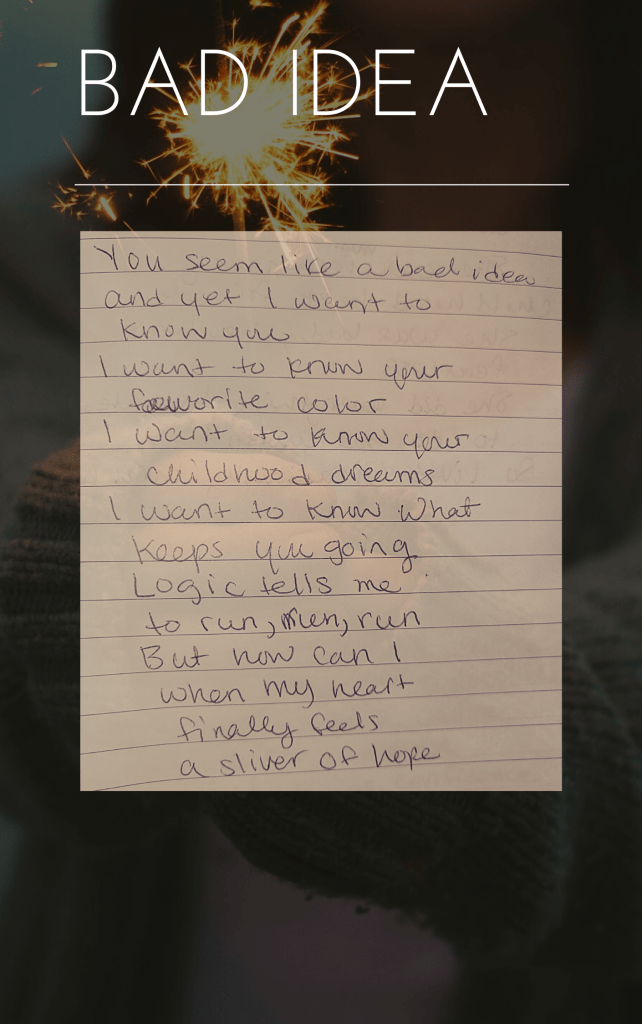 BAD IDEA
You seem like a bad idea
and yet I want to
know you
I want to know your
favorite color
I want to know your
childhood dreams
I want to know what
keeps you going
Logic tells me
to run, run, run
But how can I
when my heart
finally feels
a sliver of hope